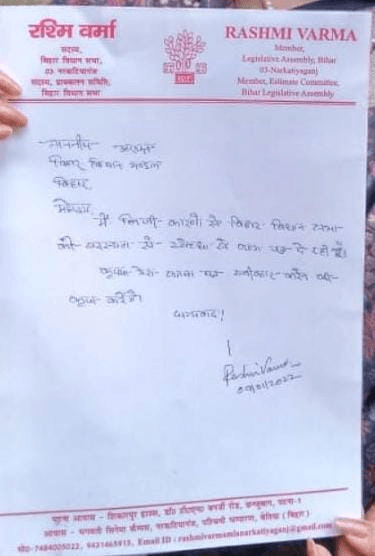 रश्मि वर्मा
सदस्य,
बिहार विधान सभा
03 नरकटियागंज
सदस्य, प्राक्कलन समिति,
बिहार विधान सभा
RASHMI VARMA
Member,
Legislative Assembly, Bihar
03-Narkatiyaganj
Member, Estimate Committee,
Bihar Legislative Assembly
माननीय अध्यक्ष
बिहार विधान मण्डल
बिहार,
महोदय,
मैं निजी कारणों से बिहार विधान सभा
की सदस्यता से त्याग पत्र दे रही हूँ।
कृपया मेरा त्याग पत्र स्वीकार करने की
कृपा करेंगे।
धन्यवाद!
Rashmi Varma
09/01/2022
पटना आवास - शिकारपुर हाउस, रोड, पटना-1
आवास - कैम्पस, नरकटियागंज, पश्चिमी चम्पारण, बेतिया (बिहार)
मो0-7484005022, 9431465913, Email ID : rashmivarmamlanarkatiyaganj@gmail.com